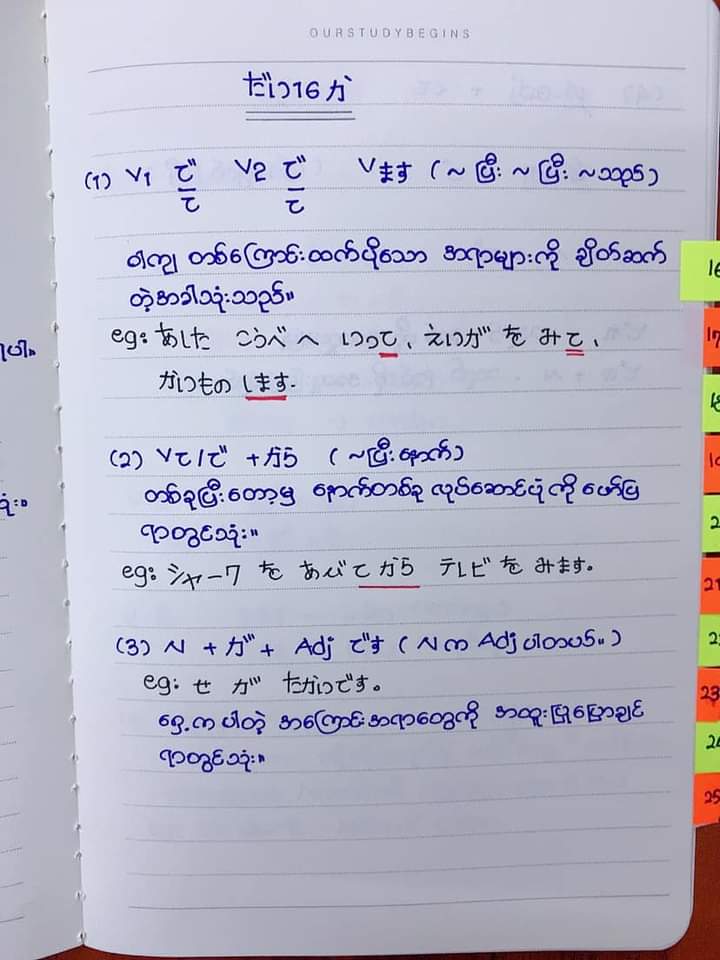 OURSTUDYBEGINS
だい16か
(1) V1 で/て V2 で/て Vます ( ~ ပြီး ~ ပြီး ~သည်)
ဝါကျ တစ်ကြောင်းထက်ပိုသော အရာများကို ချိတ်ဆက်
တဲ့အခါသုံးသည်။
eg: あした こうべへ いって、えいが を みて、
かいもの します.
(2) Vて/で +から ( ~ပြီးနောက်)
တစ်ခုပြီးတော့မှ နောက်တစ်ခု လုပ်ဆောင်ပုံ ကို ဖော်ပြ
ရာတွင်သုံး။
eg: シャーワ を あびてから テレビ を みます。
(3) N + が + Adj です ( N က Adj ပါတယ်။ )
eg: せ が たかいです。
ရှေ့က ပါတဲ့ အကြောင်းအရာတွေကို အထူးပြုပြောချင်
ရာတွင်သုံး။
16
17
18
19
2
21
2
23
24
25